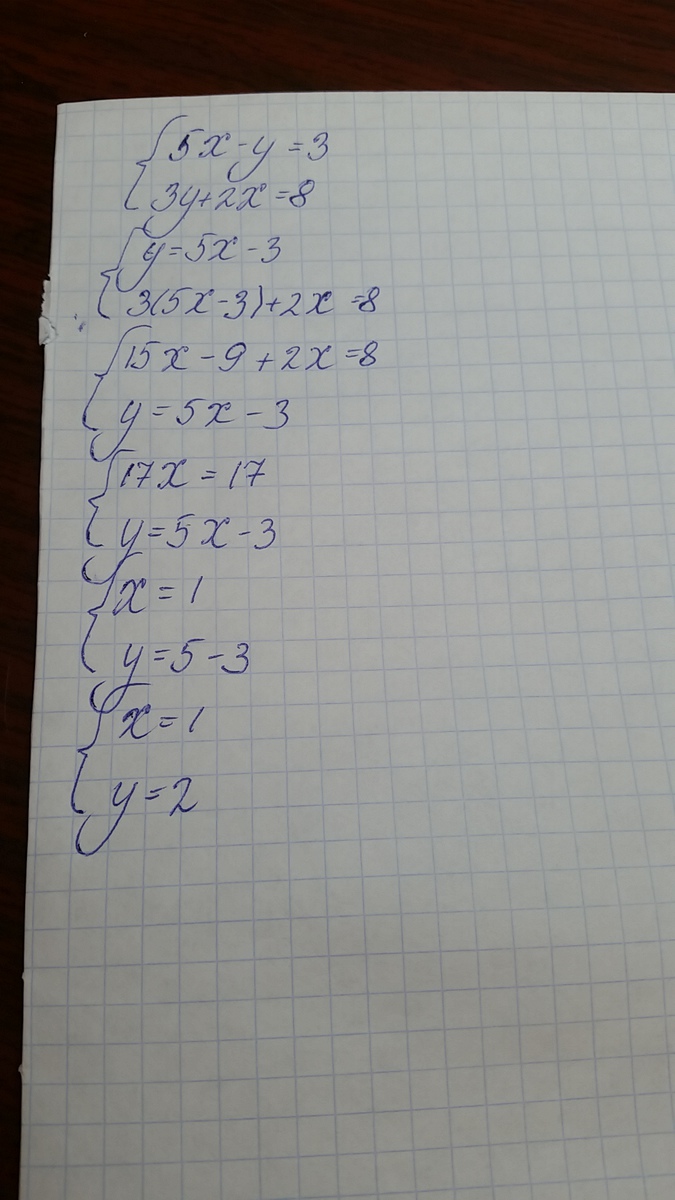 5x-y=3
3y+2x=8
y=5x-3
3(5x-3)+2x=8
15x-9+2x=8
y=5x-3
17x=17
y=5x-3
x=1
y=5-3
x=1
y=2